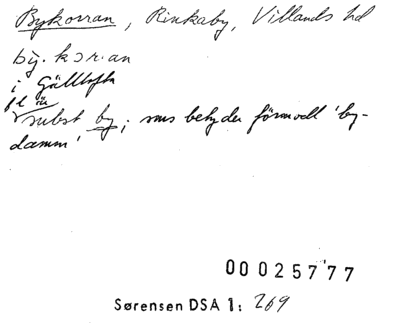 Bykorran, Rinkaby, Villands hd
by. kɔr.an
i Gälltofta
fl
subst by; sms betyder förmodl 'by-
damm'
00025777
Sørensen DSA 1: 269